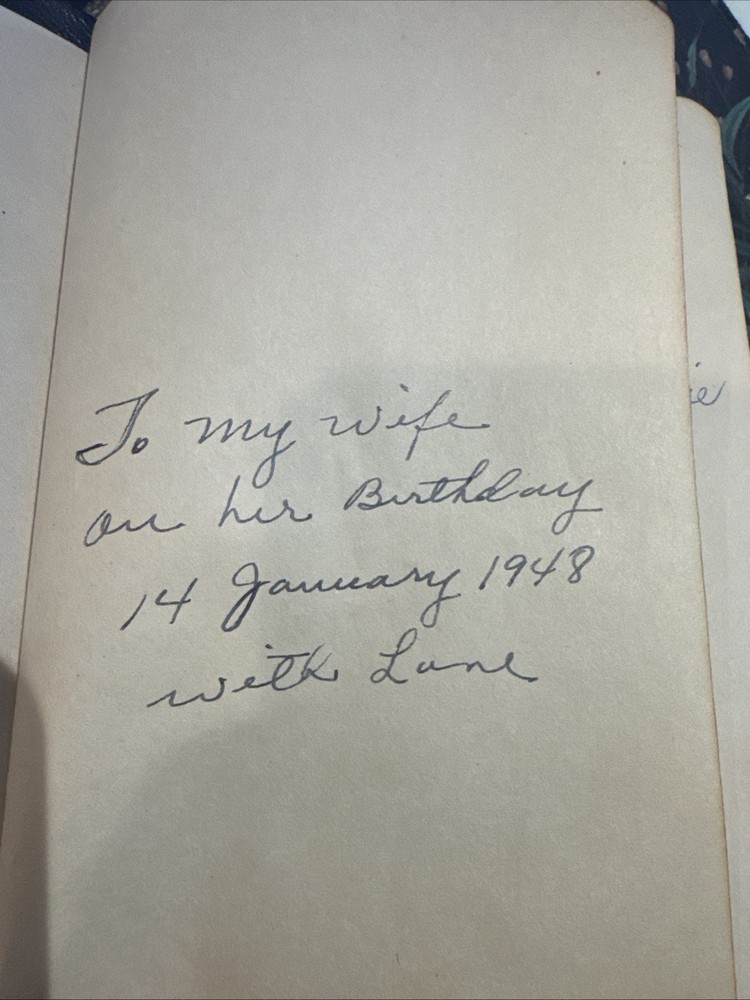 To my wife
on her Birthday
14 January 1948
with Love
ie